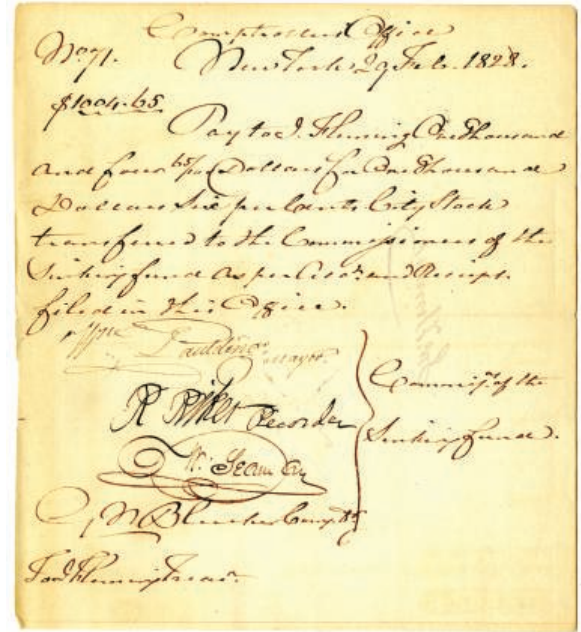 Comptrollers Office
No 71. New York 29 Feb. 1828.
$1004.65
Pay to J. Fleming One Thousand
and four 65/100 Dollars for One Thousand
Dollars Six per Cents City Stock
transferred to the Commissioners of the
Sinking fund as per and Receipt
filed in this Office.
Wm Paulding Mayor
R Riker Recorder
Commisrs. of the
Sinking fund.
W. Seaman
N Bleecker Compt
To Fleming Treasr.